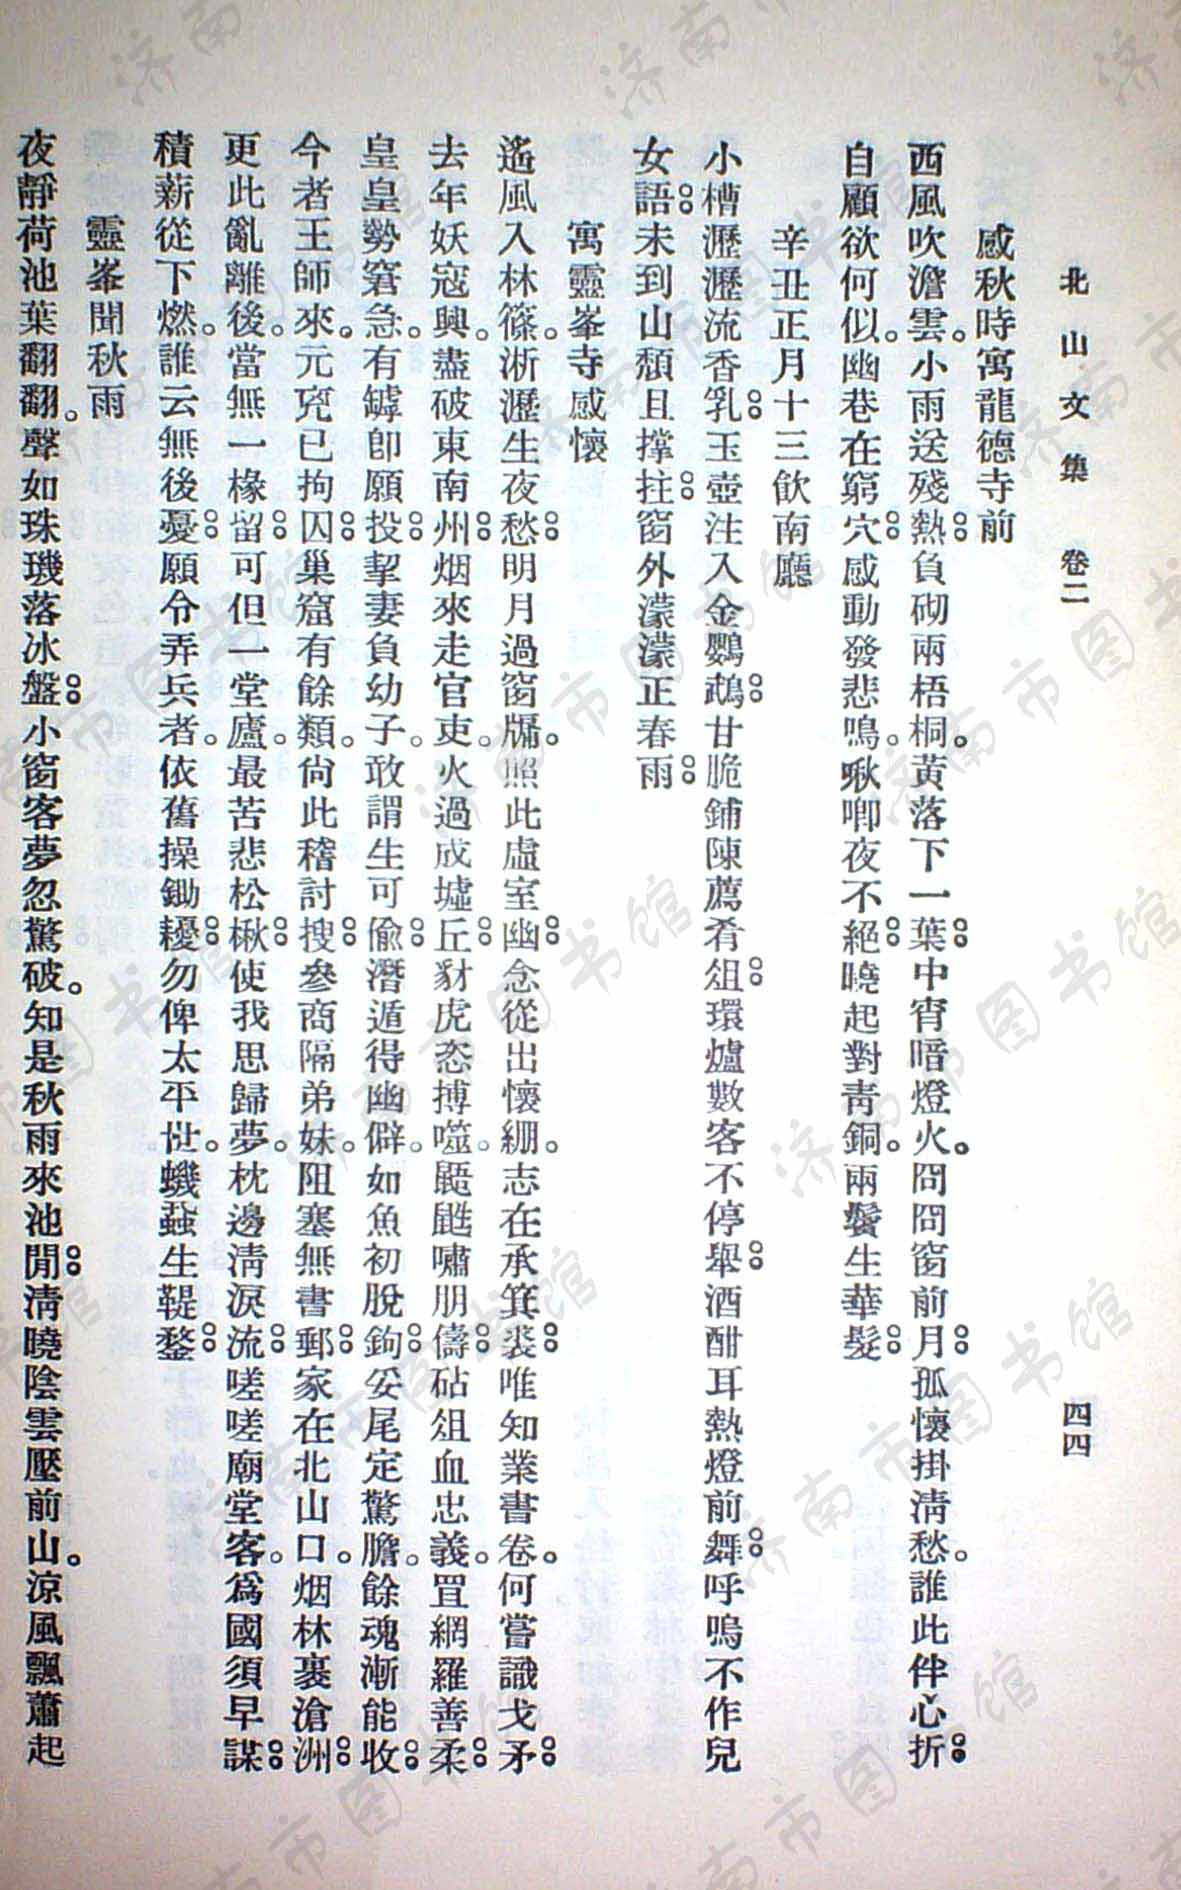 北山文集　卷二　四四
感秋時寓龍德寺前
西風吹澹雲。小雨送殘熱。負砌兩梧桐。黃落下一葉。中宵暗燈火。冏冏窗前月。孤懷掛淸愁。誰此伴心折。
自顧欲何似。幽巷在窮穴。感動發悲鳴。啾喞夜不絕。曉起對靑銅。兩鬢生華髮。
辛丑正月十三飮南廳
小槽瀝瀝流香乳。玉壺注入金鸚鵡。甘脆鋪陳薦肴俎。環爐數客不停舉。酒酣耳熱燈前舞。呼嗚不作兒
女語。未到山頹且撐拄。窗外濛濛正春雨。
寓靈峯寺感懷
遙風入林篠。淅瀝生夜愁。明月過窗牖。照此虛室幽。念從出懷綳。志在承箕裘。唯知業書卷。何嘗識戈矛。
去年妖寇興。盡破東南州。烟來走官吏。火過成墟丘。豺虎恣搏噬。鼯鼪嘯朋儔。砧俎血忠義。罝網羅善柔。
皇皇勢窘急。有罅卽願投。挈妻負幼子。敢謂生可偸。潛遁得幽僻。如魚初脫鉤。妥尾定驚膽。餘魂漸能收。
今者王師來。元兇已拘囚。巢窟有餘類。尙此稽討搜。參商隔弟妹。阻塞無書郵。家在北山口。烟林裹滄洲。
更此亂離後。當無一椽留。可但一堂廬。最苦悲松楸。使我思歸夢。枕邊淸淚流。嗟嗟廟堂客。爲國須早謀。
積薪從下燃。誰云無後憂。願令弄兵者。依舊操鋤耰。勿俾太平世。蟣蝨生鞮鍪。
靈峯聞秋雨
夜靜荷池葉翻翻。聲如珠璣落冰盤。小窗客夢忽驚破。知是秋雨來池閒。淸曉陰雲壓前山。涼風飄蕭起
济南市图书馆